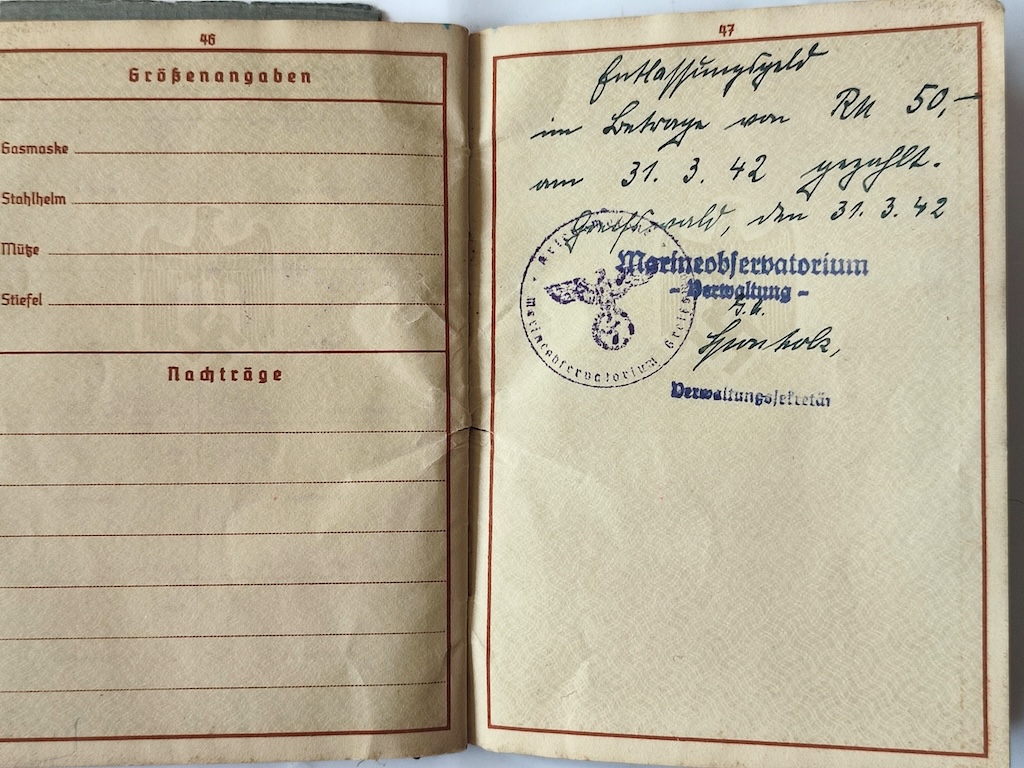 46
Größenangaben
Gasmaske
Stahlhelm
Mütze
Stiefel
Nachträge
47
Entlassungsgeld
im Betrage von RM 50,–
am 31. 3. 42 gezahlt.
Greifswald, den 31. 3. 42
Marineobservatorium
– Verwaltung –
Marineobservatorium Greifs
Verwaltungssekretär